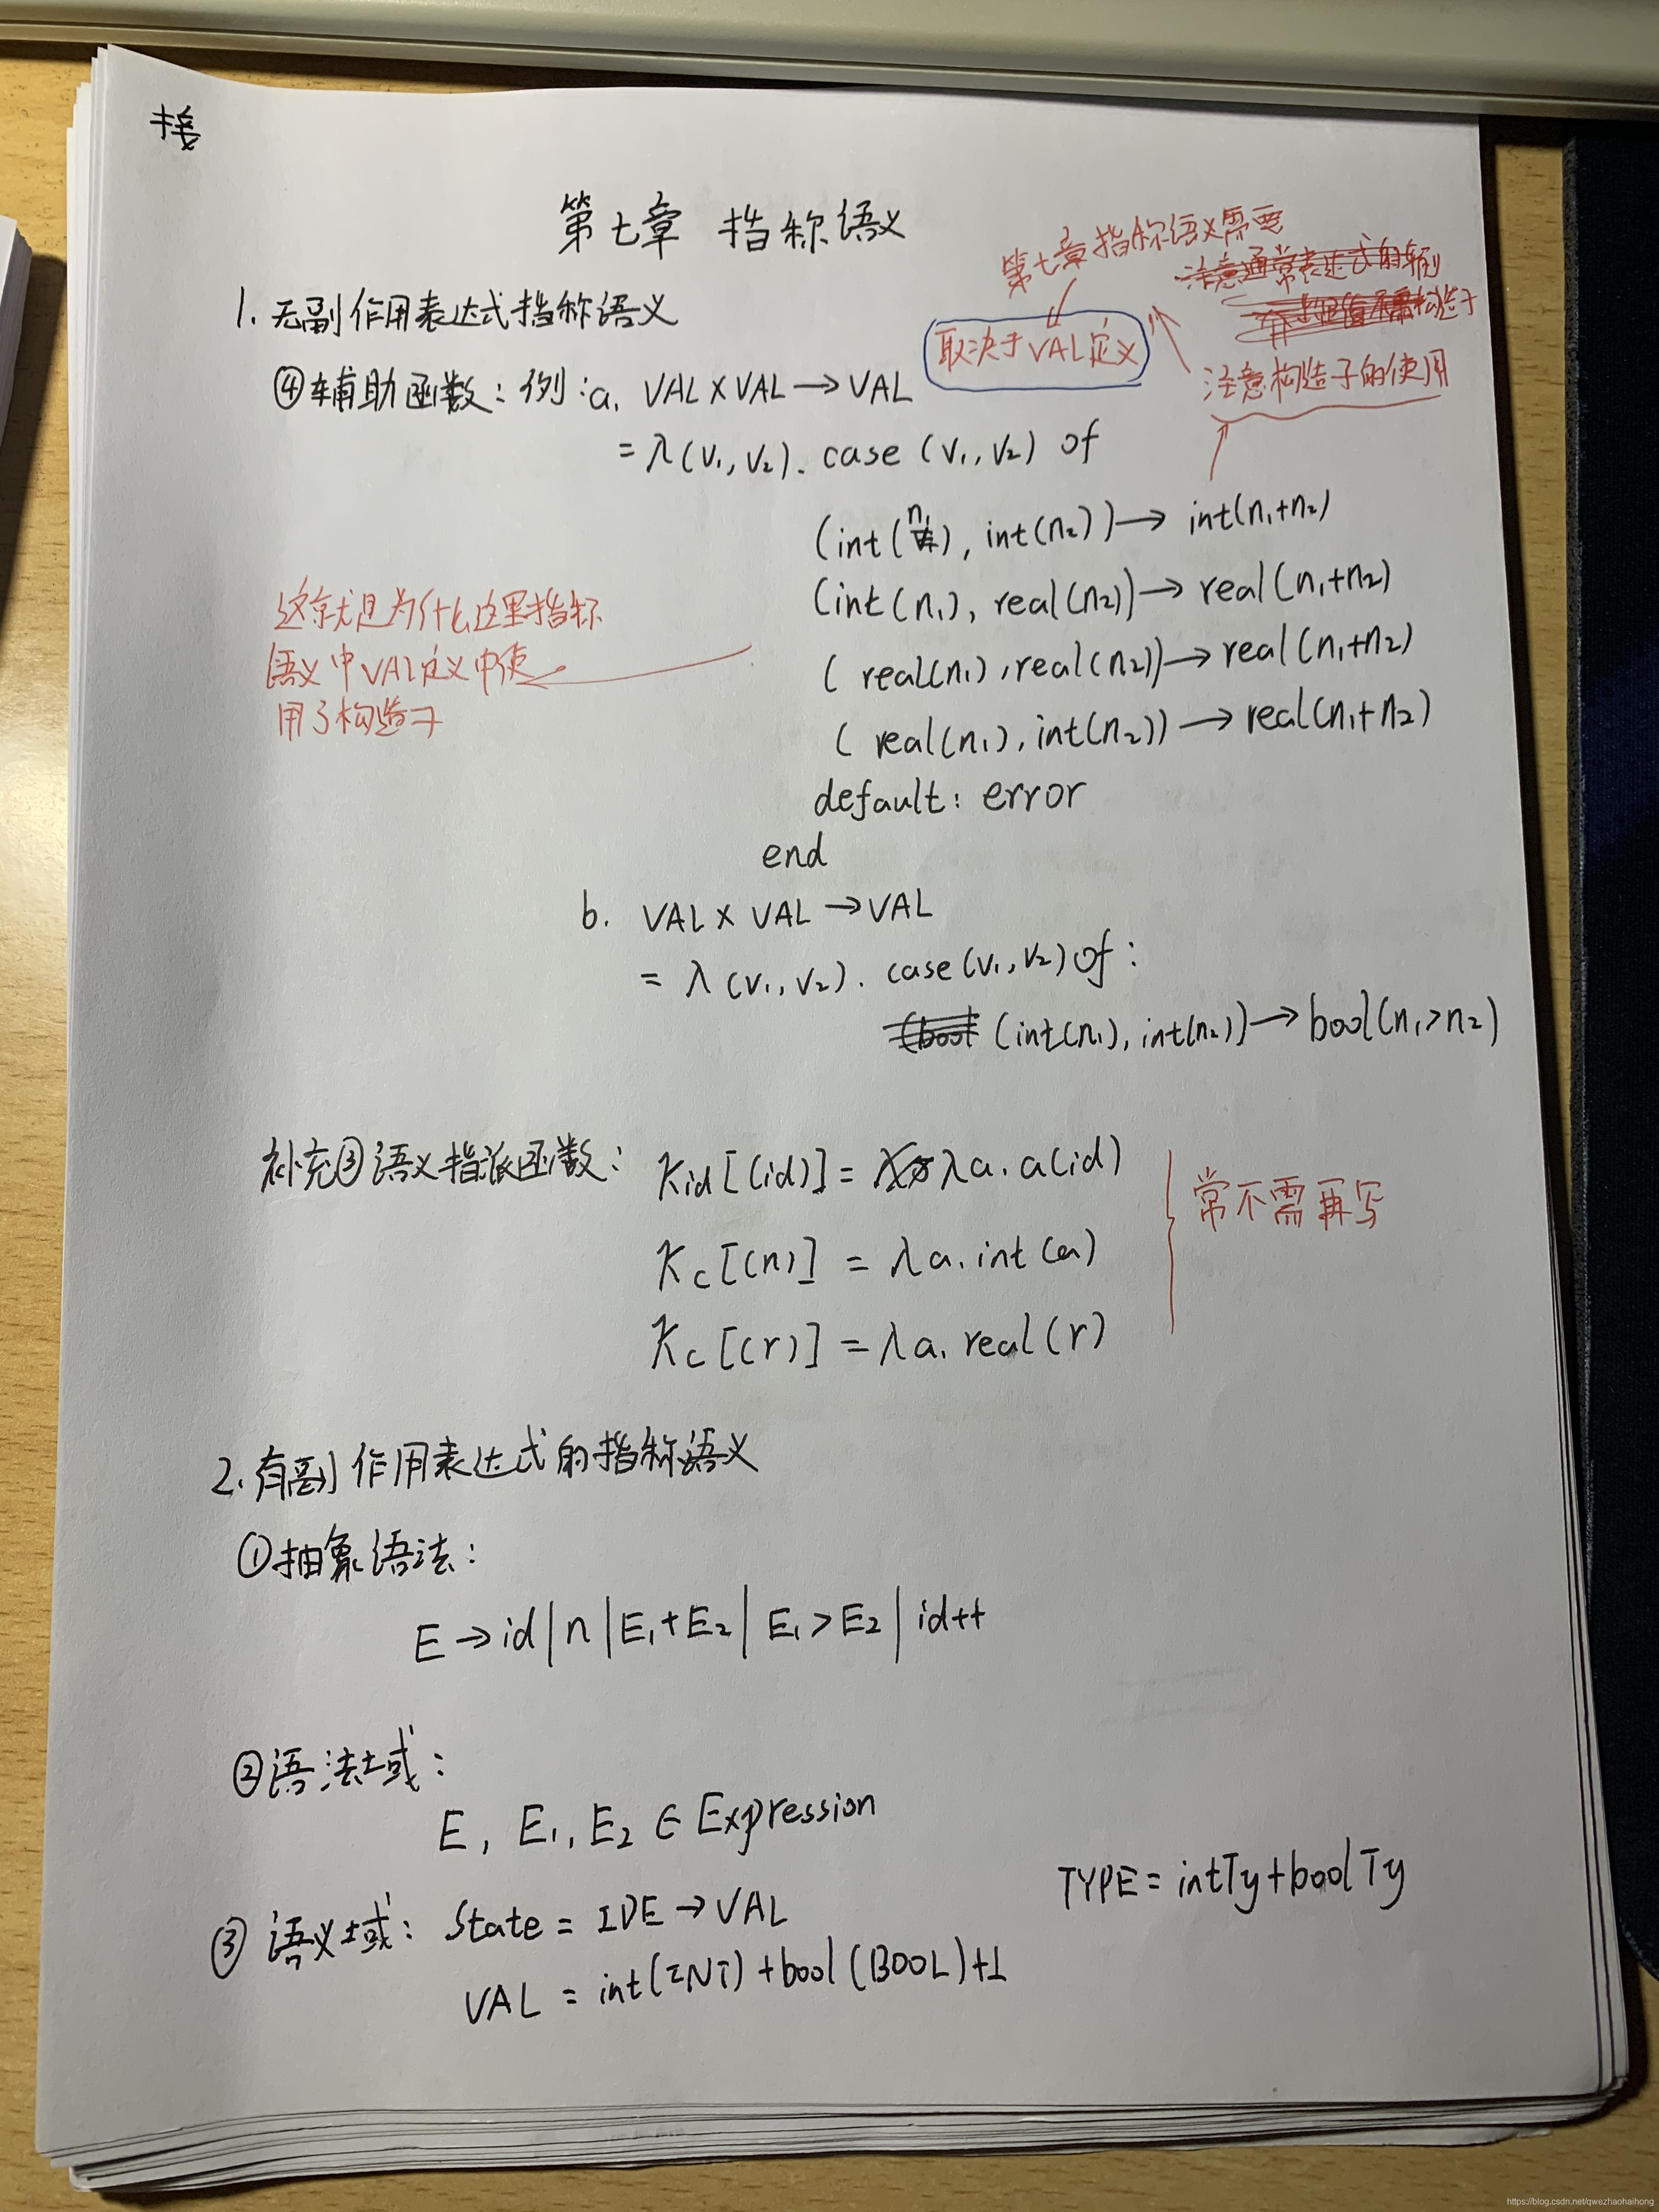 接
第七章 指称语义
第七章指称语义需要
取决于VAL定义
注意构造子的使用
1. 无副作用表达式指称语义
④辅助函数：例：a. VAL×VAL→VAL
= λ(v₁, v₂). case (v₁, v₂) of
(int(n₁), int(n₂))→ int(n₁+n₂)
(int(n₁), real(n₂))→ real(n₁+n₂)
(real(n₁), real(n₂))→ real(n₁+n₂)
(real(n₁), int(n₂))→ real(n₁+n₂)
default: error
end
这就是为什么这里指称
语义中VAL定义中使
用了构造子
b. VAL × VAL → VAL
= λ(v₁, v₂). case(v₁, v₂) of:
(int(n₁), int(n₂))→ bool(n₁>n₂)
补充③语义指派函数： Kid[(id)] = λa. a(id)
Kc[(n)] = λa. int(a)
Kc[(r)] = λa. real(r)
常不需再写
2. 有副作用表达式的指称语义
①抽象语法：
E → id | n | E₁+E₂ | E₁>E₂ | id++
②语法域：
E, E₁, E₂ ∈ Expression
TYPE = intTy+boolTy
③ 语义域： State = IDE → VAL
VAL = int(INT)+bool(BOOL)+⊥
https://blog.csdn.net/qwezhaohaihong